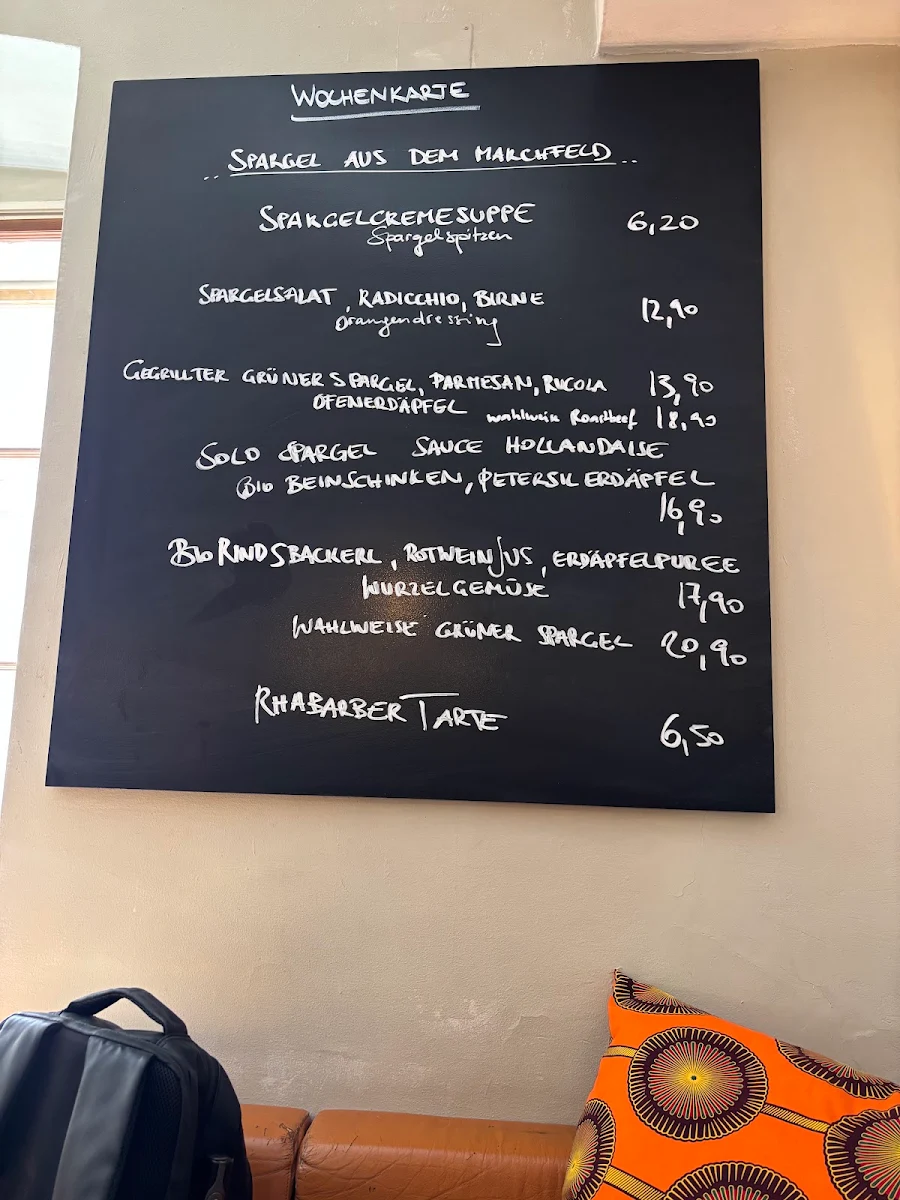 WOCHENKARTE
.. SPARGEL AUS DEM MARCHFELD ..
SPARGELCREMESUPPE 6,20
Spargelspitzen
SPARGELSALAT, RADICCHIO, BIRNE 12,90
Orangendressing
GEGRILLTER GRÜNER SPARGEL, PARMESAN, RUCOLA 13,90
OFENERDÄPFEL wahlweise Roastbeef 18,90
SOLO SPARGEL SAUCE HOLLANDAISE
BIO BEINSCHINKEN, PETERSILERDÄPFEL
16,90
BIO RINDSBACKERL, ROTWEINJUS, ERDÄPFELPUREE
WURZELGEMÜSE 17,90
WAHLWEISE GRÜNER SPARGEL 20,90
RHABARBER TARTE 6,50